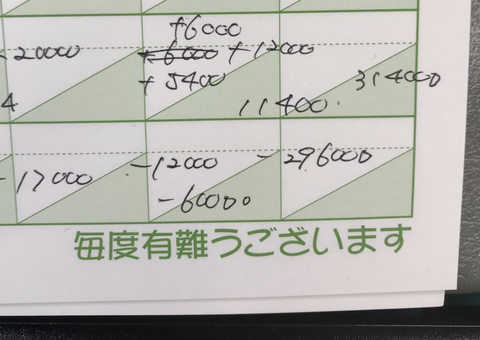 +6000
20000 +6000 +12000
+5400 314000
4 11400.
-17000 -12000 -296000
-60000
毎度有難うございます